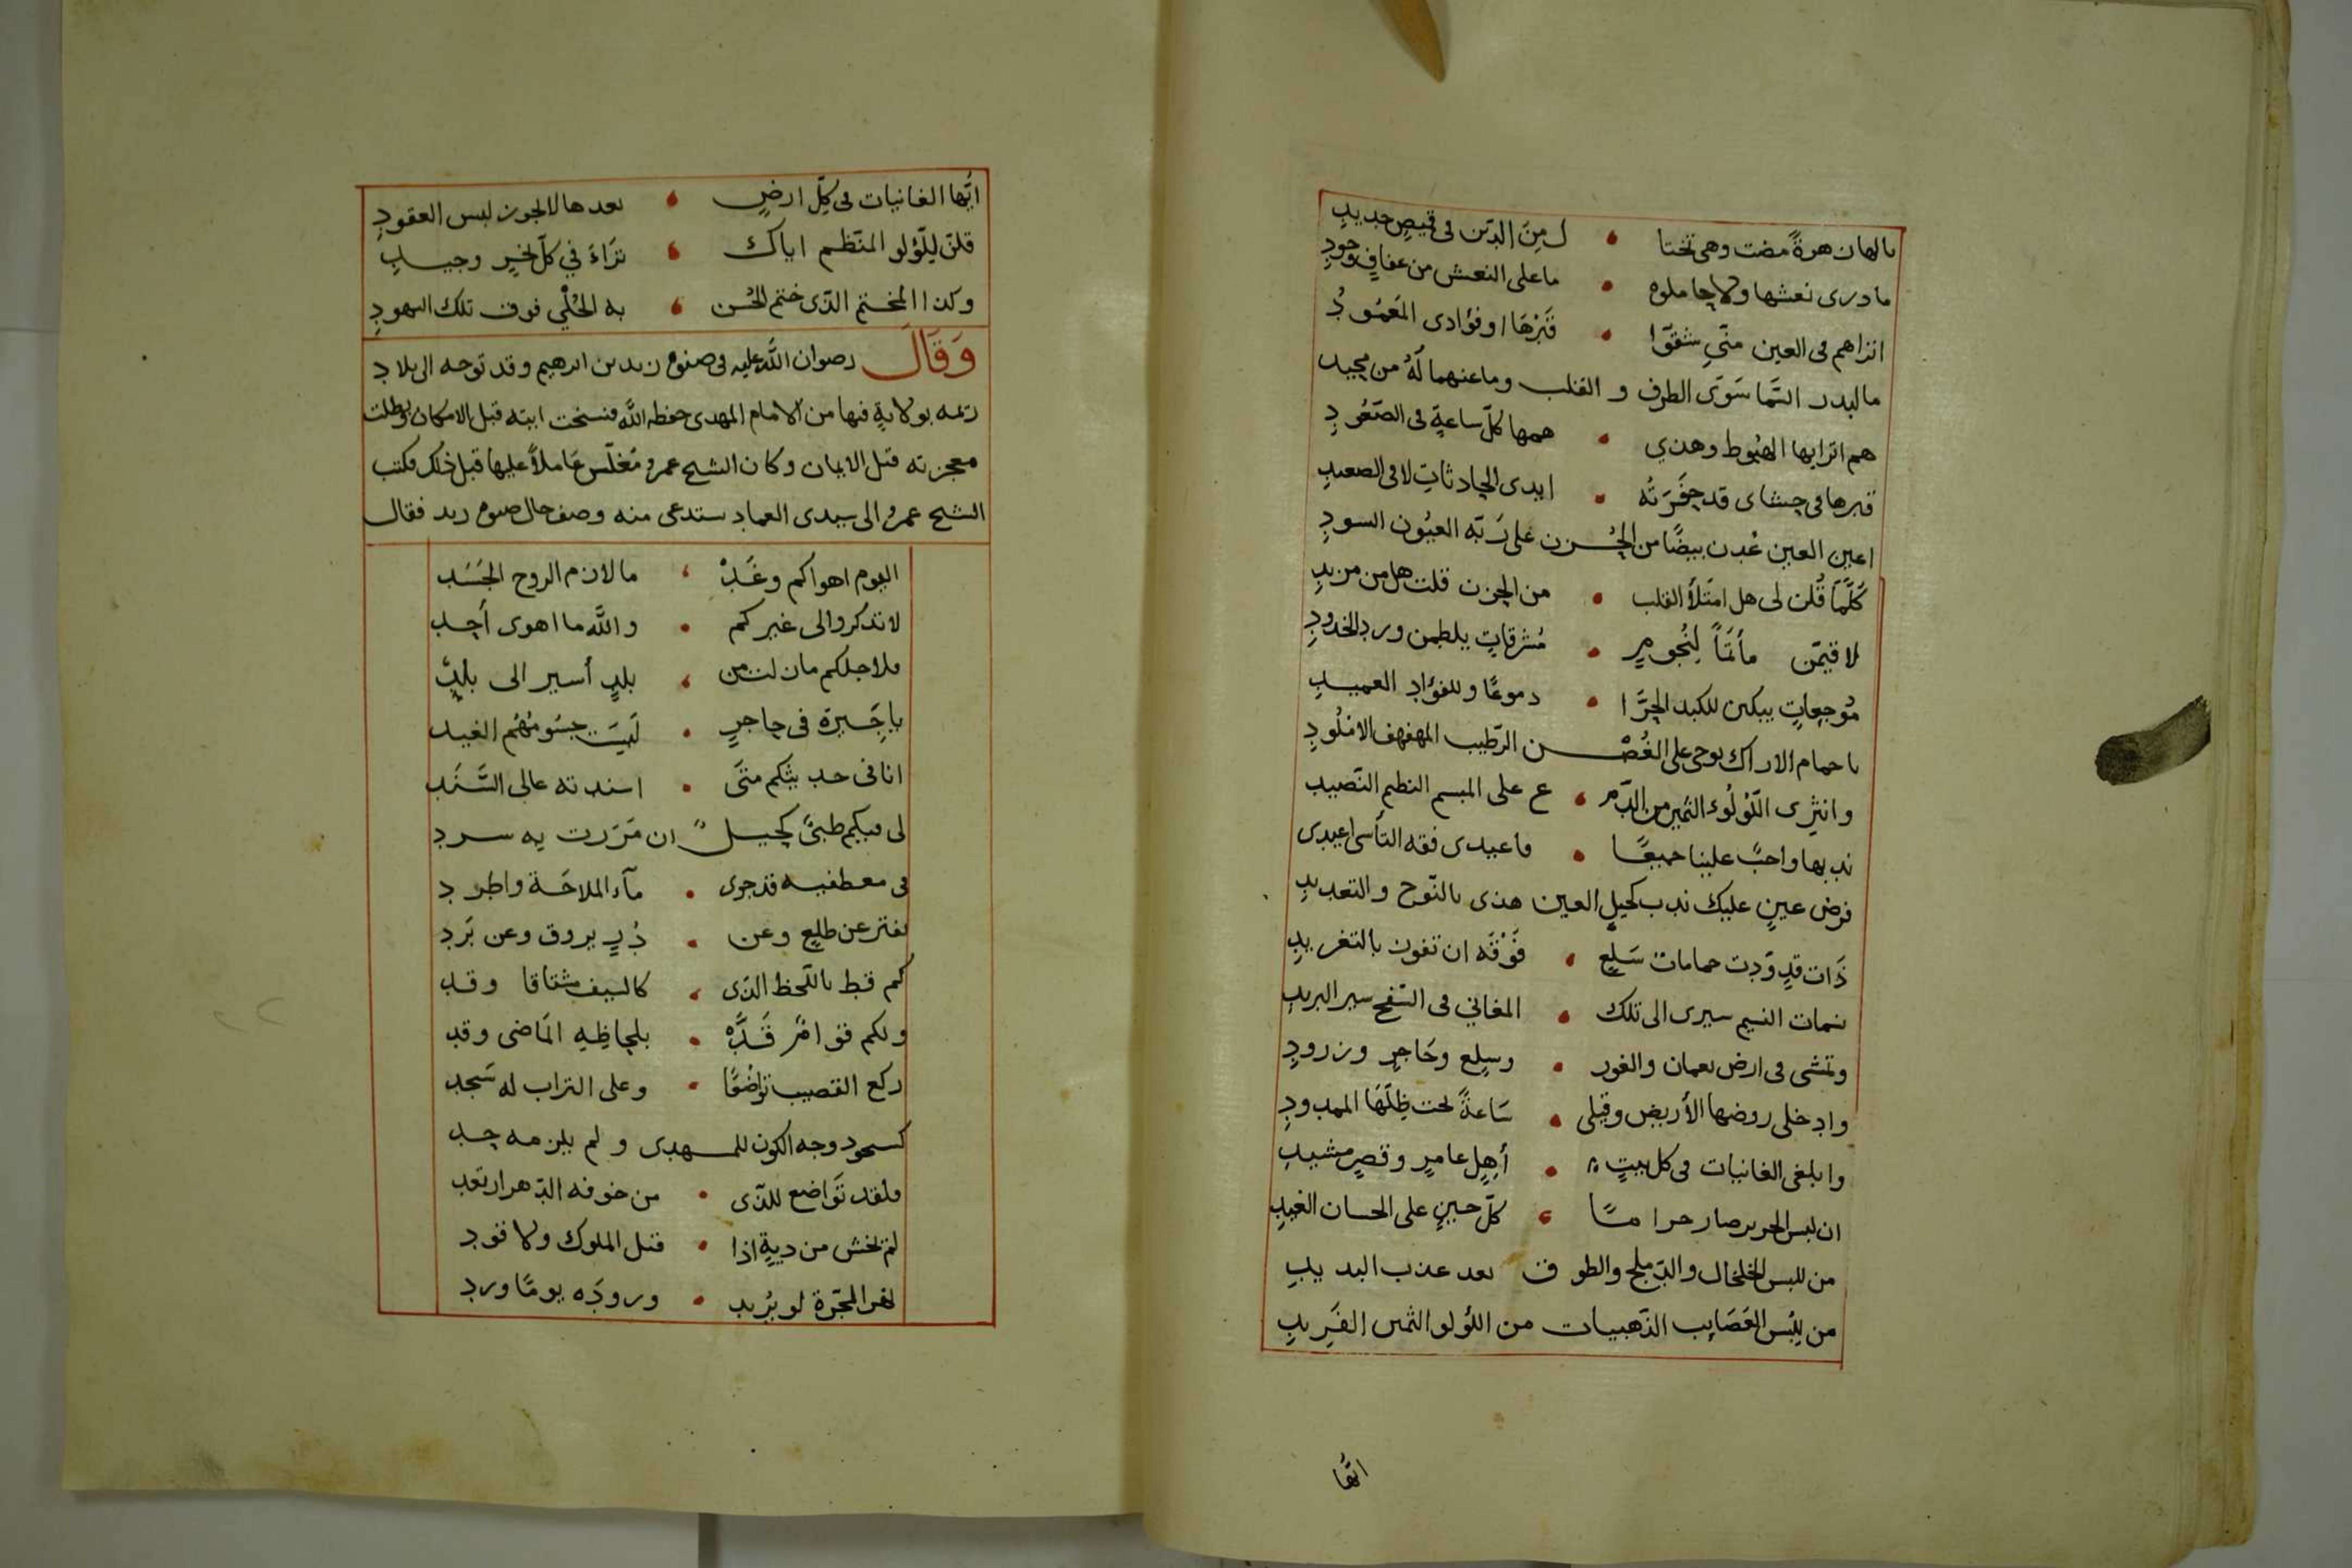 يالها من هرةً مضت وهى تختا • ل مِنَ الدّين فى قميصِ جديدِ
مادرى نعشها ولا حاملوه • ما على النعش من عفافٍ وجودِ
انزاهم فى العين منّي شقوّا • قَبْرَهَا او فؤادى المَعمُودُ
ما لبدر السَّما سَوَى الطرف و القلب وما عنهما لَهُ من محيد
هم اترابها الهبُوط وهذي • همها كلّ ساعةٍ فى الصّعُودِ
قبرها فى حشاى قد حفَرَتْه • ايدى الحادثاتِ لا فى الصعيدِ
اعين العين عُدن بيضًا من الحُزن على رَبّه العيُون السودِ
كَلَّمَا قُلن لى هل امتَلأ القلب • من الحزن قلت هل من مزيدِ
لاقيمّن مأتماً لِنُجُومٍ • مُشرقاتٍ يلطمن ورد الخدودِ
مُوجِعاتٍ يبكين للكبد الحرَّا • دموعًا وللفؤادِ العميدِ
يا حمام الاراك نوحى على الغُصْن الرّطيب المهفهف الاملُودِ
وانثِرى اللّؤلُوء الثمين من الدّمـ • ع على المبسم النظيم النّضيد
ندبها واجبٌ علينا جميعًا • فاعيدى فقه التأسى اعيدى
فرض عينٍ عليك ندب كحيلِ العين هذى بالنّوح والتعديدِ
ذَات قدٍ وَدت حمامات سَلعٍ • فَوْقَه ان تفوت بالتغريدِ
نسمات النسيم سيرى الى تلك • المغاني فى السّفح سير البريدِ
وتمشى فى ارض نعمان والغور • وسلع وحَاجرٍ وزرودِ
وادخلى روضها الأريض وقيلى • سَاعةً تحت ظِلّهَا الممدودِ
وابلغى الغانيات فى كل بيتٍ • أهِلٍ عامرٍ وقصرٍ مشيدِ
ان لبس الحرير صار حراما • كلّ حينٍ على الحسان الغيدِ
من للبس الخلخال والدّملج والطوق بعد عذب البديدِ
من يلبس العَصَايب الذّهبيات من اللؤلو الثمين الفَرِيدِ
ايّها
ايُّها الغانيات فى كلّ ارضٍ • بعدها لا يجوز لبس العقودِ
قلن للّؤلو المنّظم اياك • تَرَاءَ في كلّ نحرٍ وجيدِ
وكذا المختم الذّى ختم الحُسن • به الحُلْي فوق تلك النهودِ
وَقَالَ رضوان اللَّه عليه فى صنوه زيد بن ابرهيم وقد توجه الى بلاد
ريمه بولايةٍ فيها من الامام المهدى حفظه اللَّه فنسخت ايته قبل الامكان وبطلت
معجزته قبل الايمان وكان الشيخ عمرو مُغلّس عَاملاً عليها قبل ذلك فكتب
الشيخ عمرو الى سيدى العماد يستدعى منه وصف حال صنوه زيد فقال
اليوم اهواكم وغَدْ • ما لازم الروح الجَسَد
لا تذكروالى غيركم • واللَّه ما اهوى أحد
فلاجلكم مازلت من • بلدٍ أسير الى بلدٍ
يا جِيرة فى حاجرٍ • لَيسَت جسومُهُم الغيد
انا فى حديثكم متَى • اسندته عالى السَّنَد
لى فيكم ظبىٌ كحيلٌ ان مَرَرت به سرد
فى معطفيه قد جرى • مآء الملاحَة واطرد
يفتر عن طلعٍ وعن • دُرٍ يروق وعن بَرَد
كم قط باللّحظ الذّى • كالسيف مشتاقا وقد
ولكم فتى امرٌ قَدَّه • بلحاظِهِ المَاضى وقد
ركع القضيب تواضُعًا • وعلى التراب له سَجد
كسجود وجه الكون للمهدى ولم يلزمه حد
فلقد تَوَاضع للذّى • من خوفه الدّهر ارتعد
لم تخش من ديةٍ اذا • قتل الملوك ولا قود
نهر المجّرة لو يُريد • ورودَه يومًا ورد